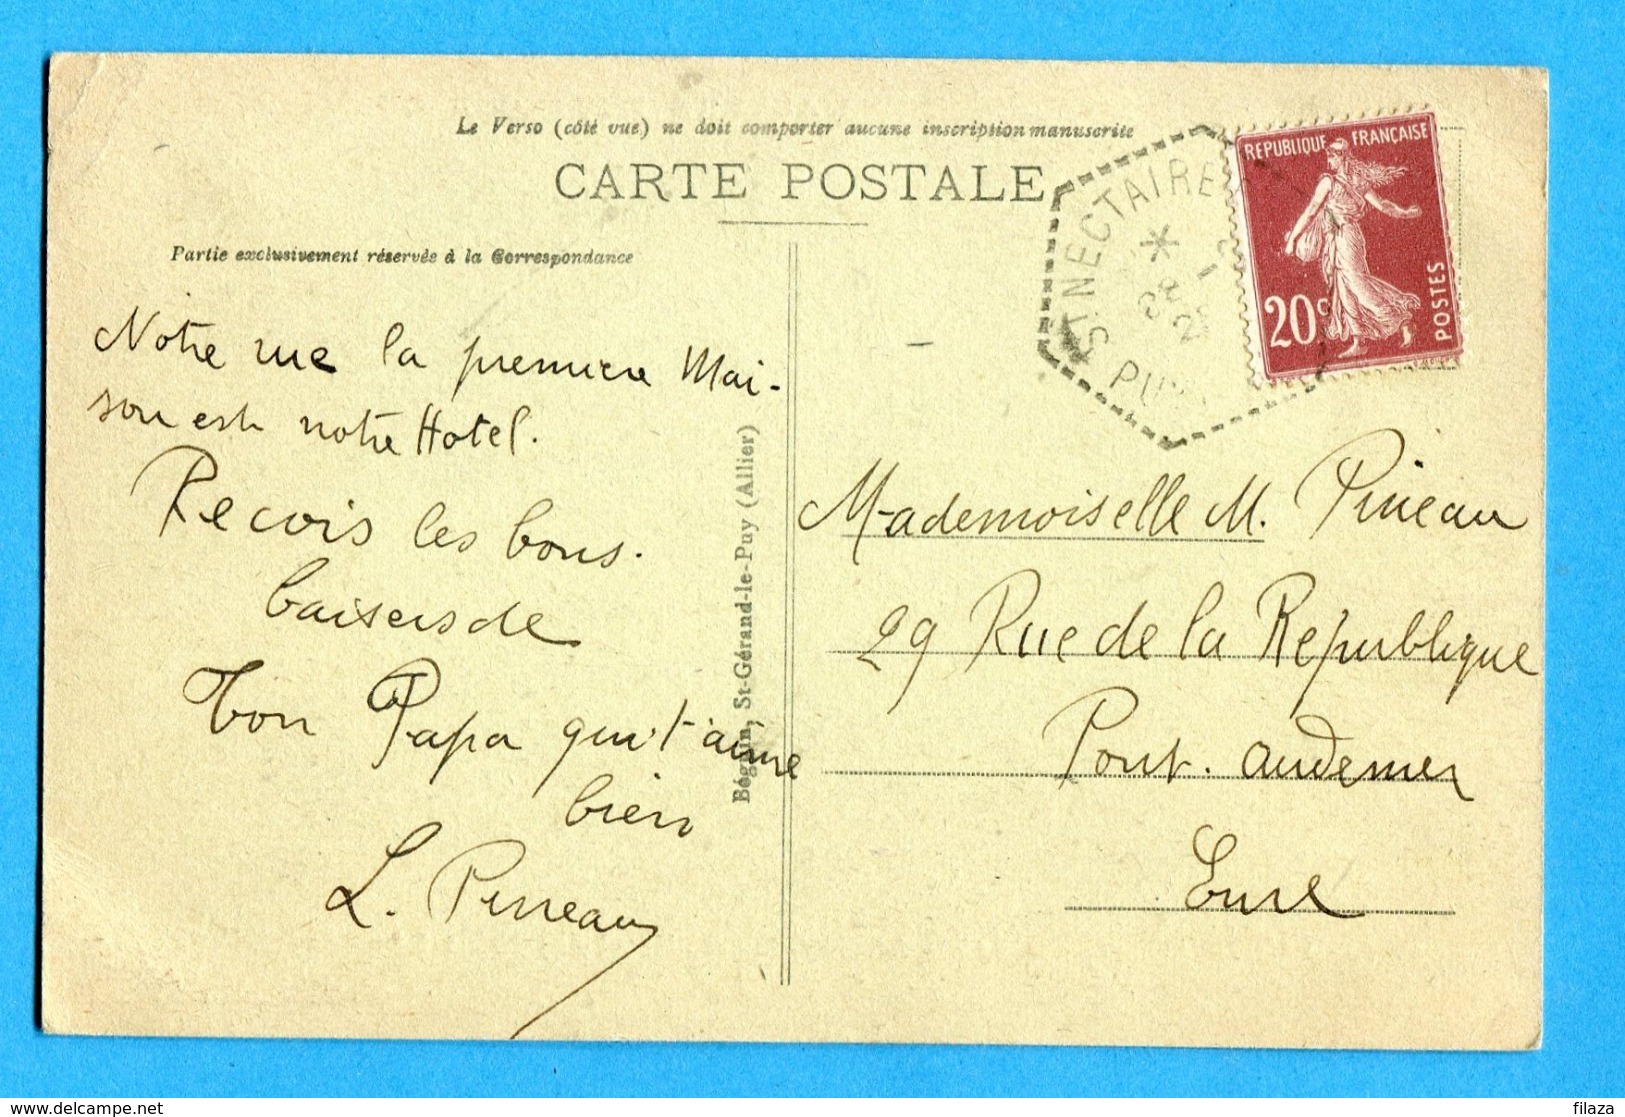 Le Verso (côté vue) ne doit comporter aucune inscription manuscrite
CARTE POSTALE
Partie exclusivement réservée à la Correspondance
Notre rue la premiere Mai-
son est notre Hotel.
Recois les bons.
baisers de
Ton Papa qui t'aime
bien
L. Pineau
Béguin, St-Gérand-le-Puy (Allier)
ST NECTAIRE
PUY
REPUBLIQUE FRANÇAISE
20c
POSTES
Mademoiselle M. Pineau
29 Rue de la Republique
Pont. Audemer
Eure
filaza